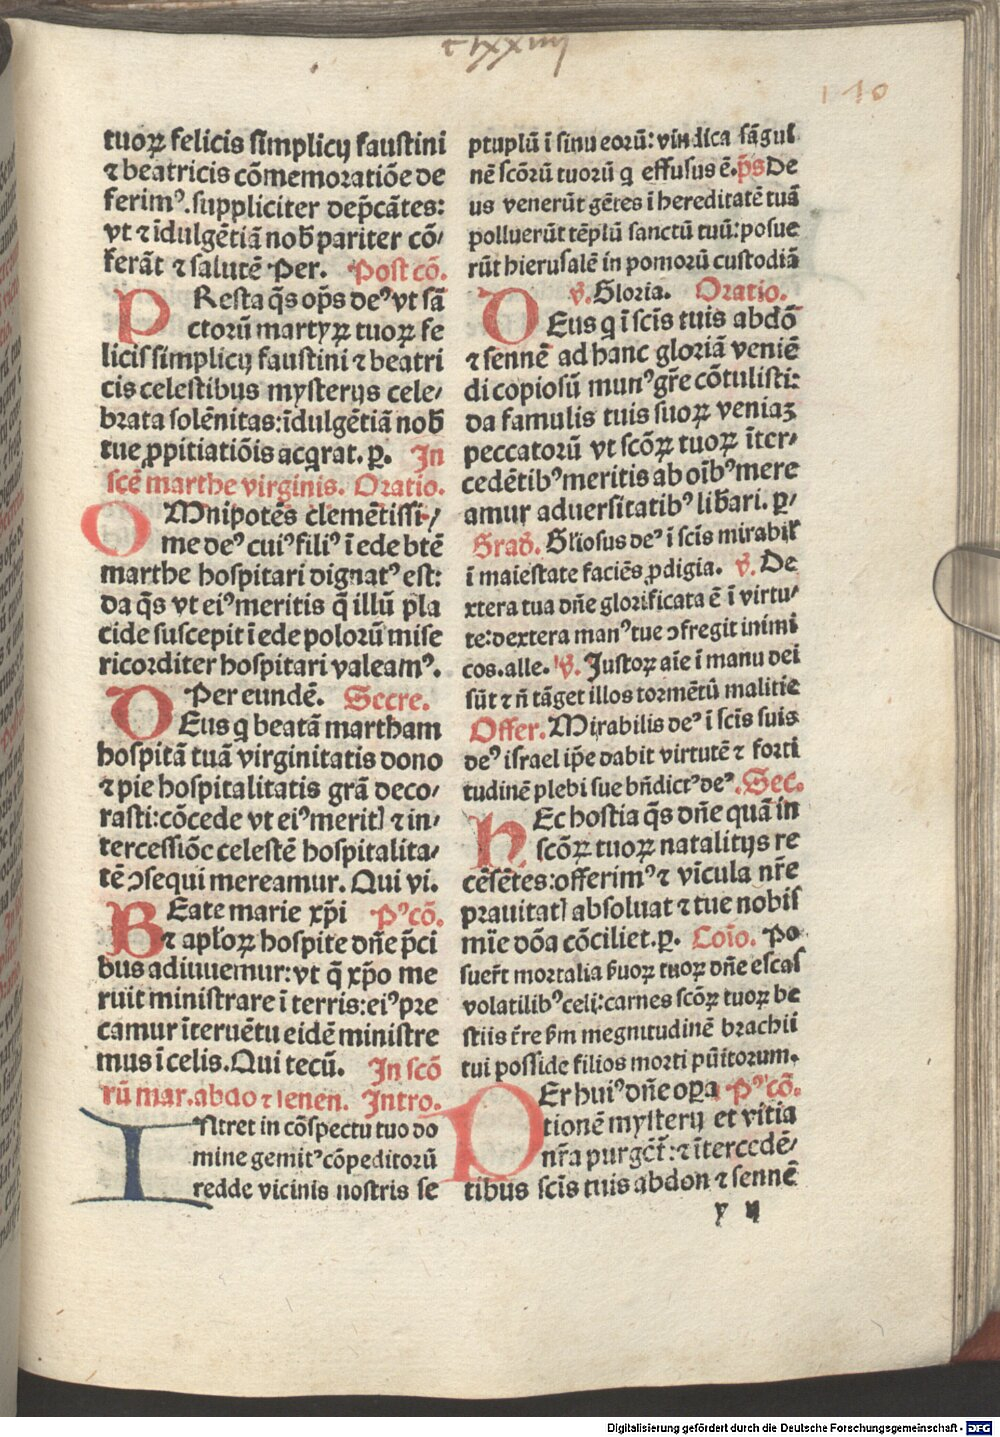 clxxiiij
110
tuoꝝ felicis simplicij faustini
⁊ beatricis cōmemoratiōe de
ferimꝰ. suppliciter dep̄cātes:
vt ⁊ īdulgētiā nob̄ pariter cō/
ferāt ⁊ salutē Per. Post cō.
PResta q̄s op̄s deꝰ vt sā
ctorū martyꝝ tuoꝝ fe
licis simplicij faustini ⁊ beatri
cis celestibus mysterijs cele/
brata solēnitas: īdulgētiā nob̄
tue ꝓpitiatiōis acqrat. p̱. In
scē marthe virginis. Oratio.
OMnipotēs clemētissi/
me deꝰ cuiꝰ filiꝰ ī ede btē
marthe hospitari dignatꝰ est:
da q̄s vt eiꝰ meritis q̄ illū pla
cide suscepit ī ede polorū mise
ricorditer hospitari valeamꝰ.
Per eundē. Secre.
DEus q beatā martham
hospitā tuā virginitatis dono
⁊ pie hospitalitatis grā deco/
rasti: cōcede vt eiꝰ meritꝭ ⁊ in/
tercessiōe celestē hospitalita/
tē ꝯsequi mereamur. Qui vi.
BEate marie xp̄i Pꝰcō.
⁊ apl̄oꝝ hospite dn̄e p̄ci
bus adiuuemur: vt q̄ xp̄o me
ruit ministrare ī terris: eiꝰ pre
camur īteruētu eidē ministre
mus ī celis. Qui tecū. In scō
rū mar. abdo ⁊ senen. Intro.
INtret in cōspectu tuo do
mine gemitꝰ cōpeditorū
redde vicinis nostris se
ptuplū ī sinu eorū: vindica sāgui
nē scōrū tuorū q effusus ē. p̄s De
us venerūt gētes ī hereditatē tuā
polluerūt tēplū sanctū tuū: posue
rūt hierusalē in pomorū custodiā
v̄. Gloria. Oratio.
DEus q ī scīs tuis abdō
⁊ sennē ad hanc gloriā veniē
di copiosū munꝰ gr̄e cōtulisti:
da famulis tuis suoꝝ veniaꝫ
peccatorū vt scōꝝ tuoꝝ īter/
cedētibꝰ meritis ab oībꝰ mere
amur aduersitatibꝰ lib̄ari. p̱/
Grad̄. Gl̄iosus deꝰ ī scīs mirabil'
ī maiestate faciēs ꝓdigia. v̄. De
xtera tua dn̄e glorificata ē ī virtu/
te: dextera manꝰ tue ꝯfregit inimi
cos. alle. v̄. Justoꝝ aīe ī manu dei
sūt ⁊ n̄ tāget illos tormētū malitie
Offer. Mirabilis deꝰ ī scīs suis
deꝰ israel ip̄e dabit virtutē ⁊ forti
tudinē plebi sue bn̄dictꝰ deꝰ. Sec.
HEc hostia q̄s dn̄e quā in
scōꝝ tuoꝝ natalitijs re
cēsētes: offerimꝰ ⁊ vīcula nr̄e
prauitatꝭ absoluat ⁊ tue nobis
mīe dōa cōciliet. p̱. Coīo. Po
suer̄t mortalia ẜuoꝝ tuoꝝ dn̄e escas
volatilibꝰ celi: carnes scōꝝ tuoꝝ be
stiis t̄re ẜm megnitudinē brachii
tui posside filios morti pūitorum.
PEr huiꝰ dn̄e opa Pꝰcō.
tionē mysterij et vitia
nr̄a purgēt̄: ⁊ ītercedē/
tibus scīs tuis abdon ⁊ sennē
y ij
Digitalisierung gefördert durch die Deutsche Forschungsgemeinschaft - DFG